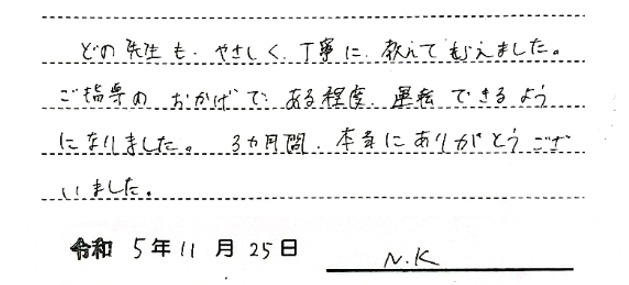 どの先生も、やさしく、丁寧に、教えてもらえました。
ご指導の おかげで、ある程度、運転できるよう
になりました。 3カ月間、本当にありがとうござ
いました。
令和 5年11月25日 N.K